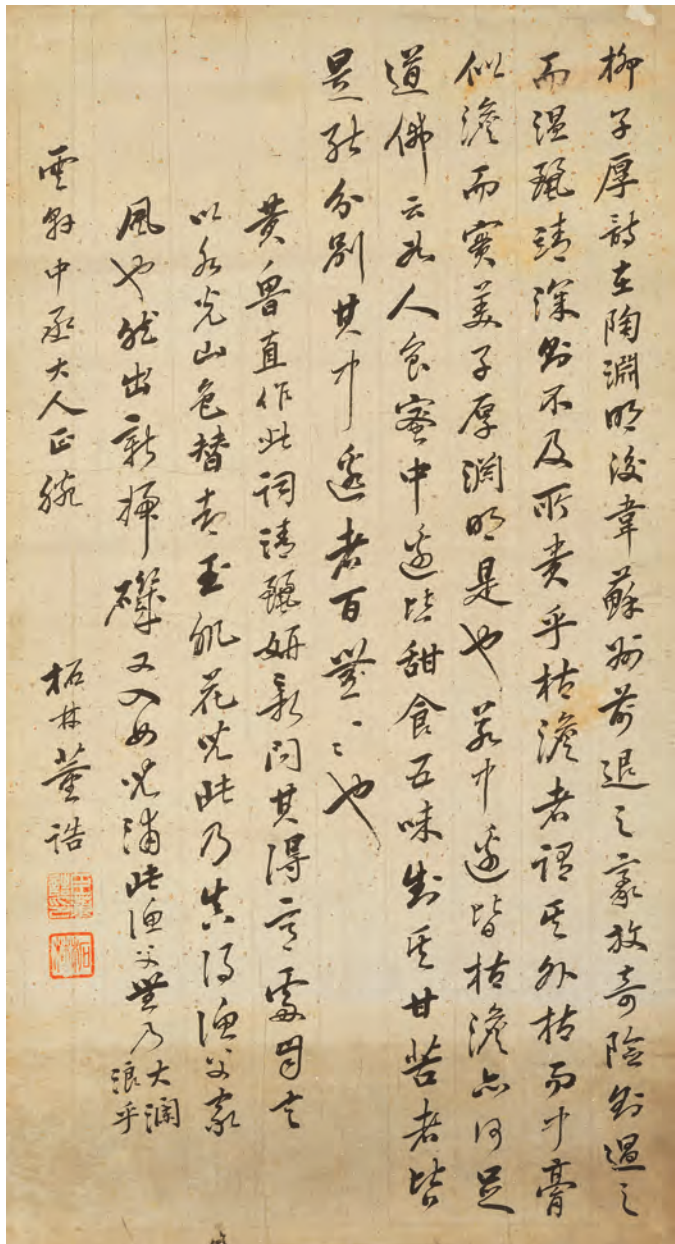 柳子厚詩在陶淵明後韋蘇州前退之豪放奇險則過之
而溫麗靖深則不及所貴乎枯澹者謂其外枯而中膏
似澹而實美子厚淵明是也若中邊皆枯澹亦何足
道佛云如人食蜜中邊皆甜食五味對其甘苦者皆
是能分別其中邊者百無一二也
黃魯直作此詞清麗妍新問其得意處自言
以水光山色替却玉肌花貌此乃真得漁父家
風也然出新婦磯又入女兒浦此漁父無乃大瀾浪乎
雲軒中丞大人正腕
柘林董誥